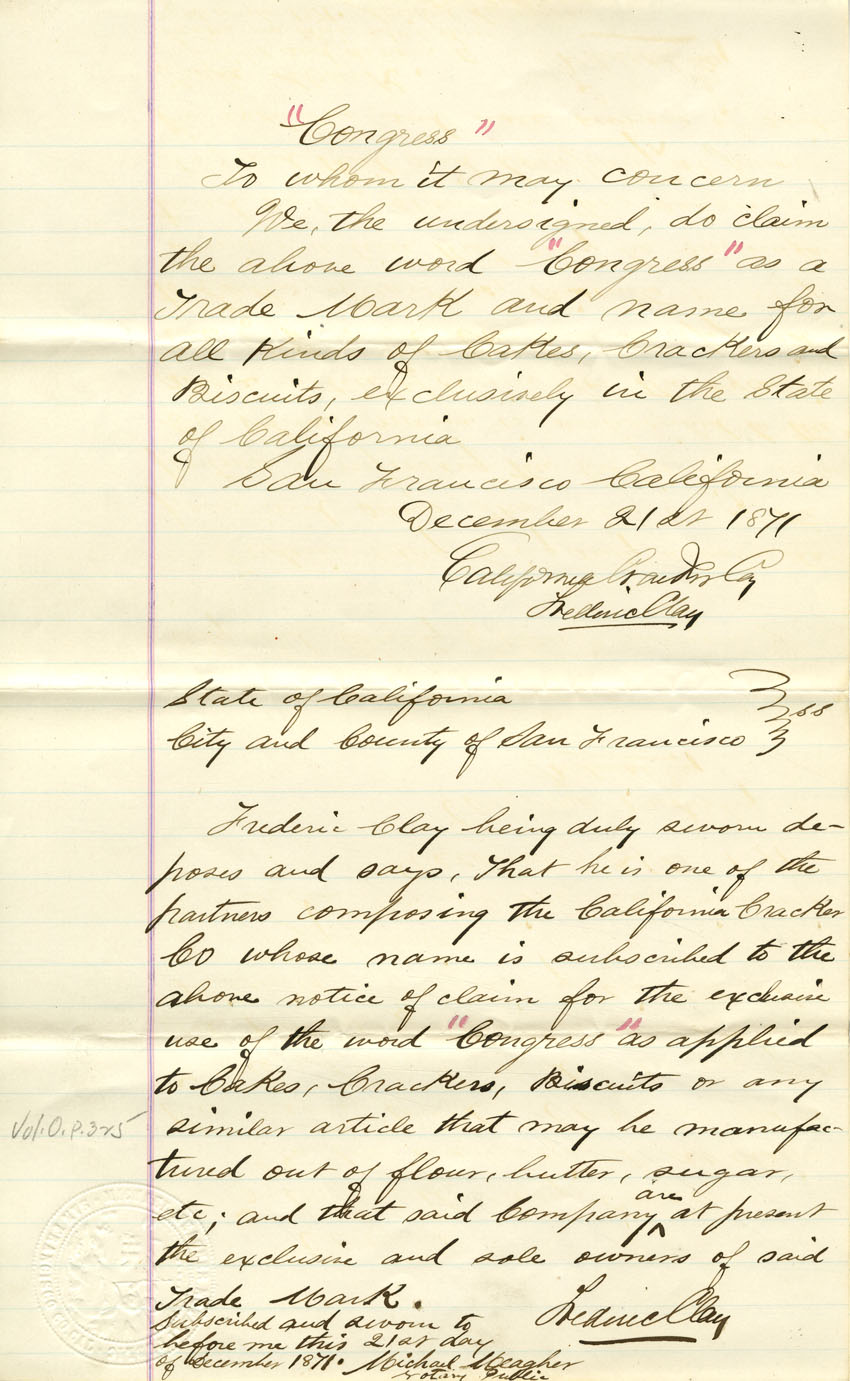 "Congress"
To whom it may concern
We, the undersigned, do claim
the above word "Congress" as a
Trade Mark and name for
all Kinds of Cakes, Crackers and
Biscuits, exclusively in the State
of California
San Francisco California
December 21st 1871
California Cracker Co
Frederic Clay
State of California
City and County of San Francisco } ss
Frederic Clay being duly sworn de-
poses and says, That he is one of the
partners composing the California Cracker
Co whose name is subscribed to the
above notice of claim for the exclusive
use of the word "Congress" as applied
to Cakes, Crackers, Biscuits or any
similar article that may be manufac-
Vol. O. P. 325
tured out of flour, butter, sugar,
etc; and that said Company are at present
the exclusive and sole owners of said
Trade Mark.
Frederic Clay
Subscribed and sworn to
before me this 21st day
of December 1871. Michael Meagher
Notary Public